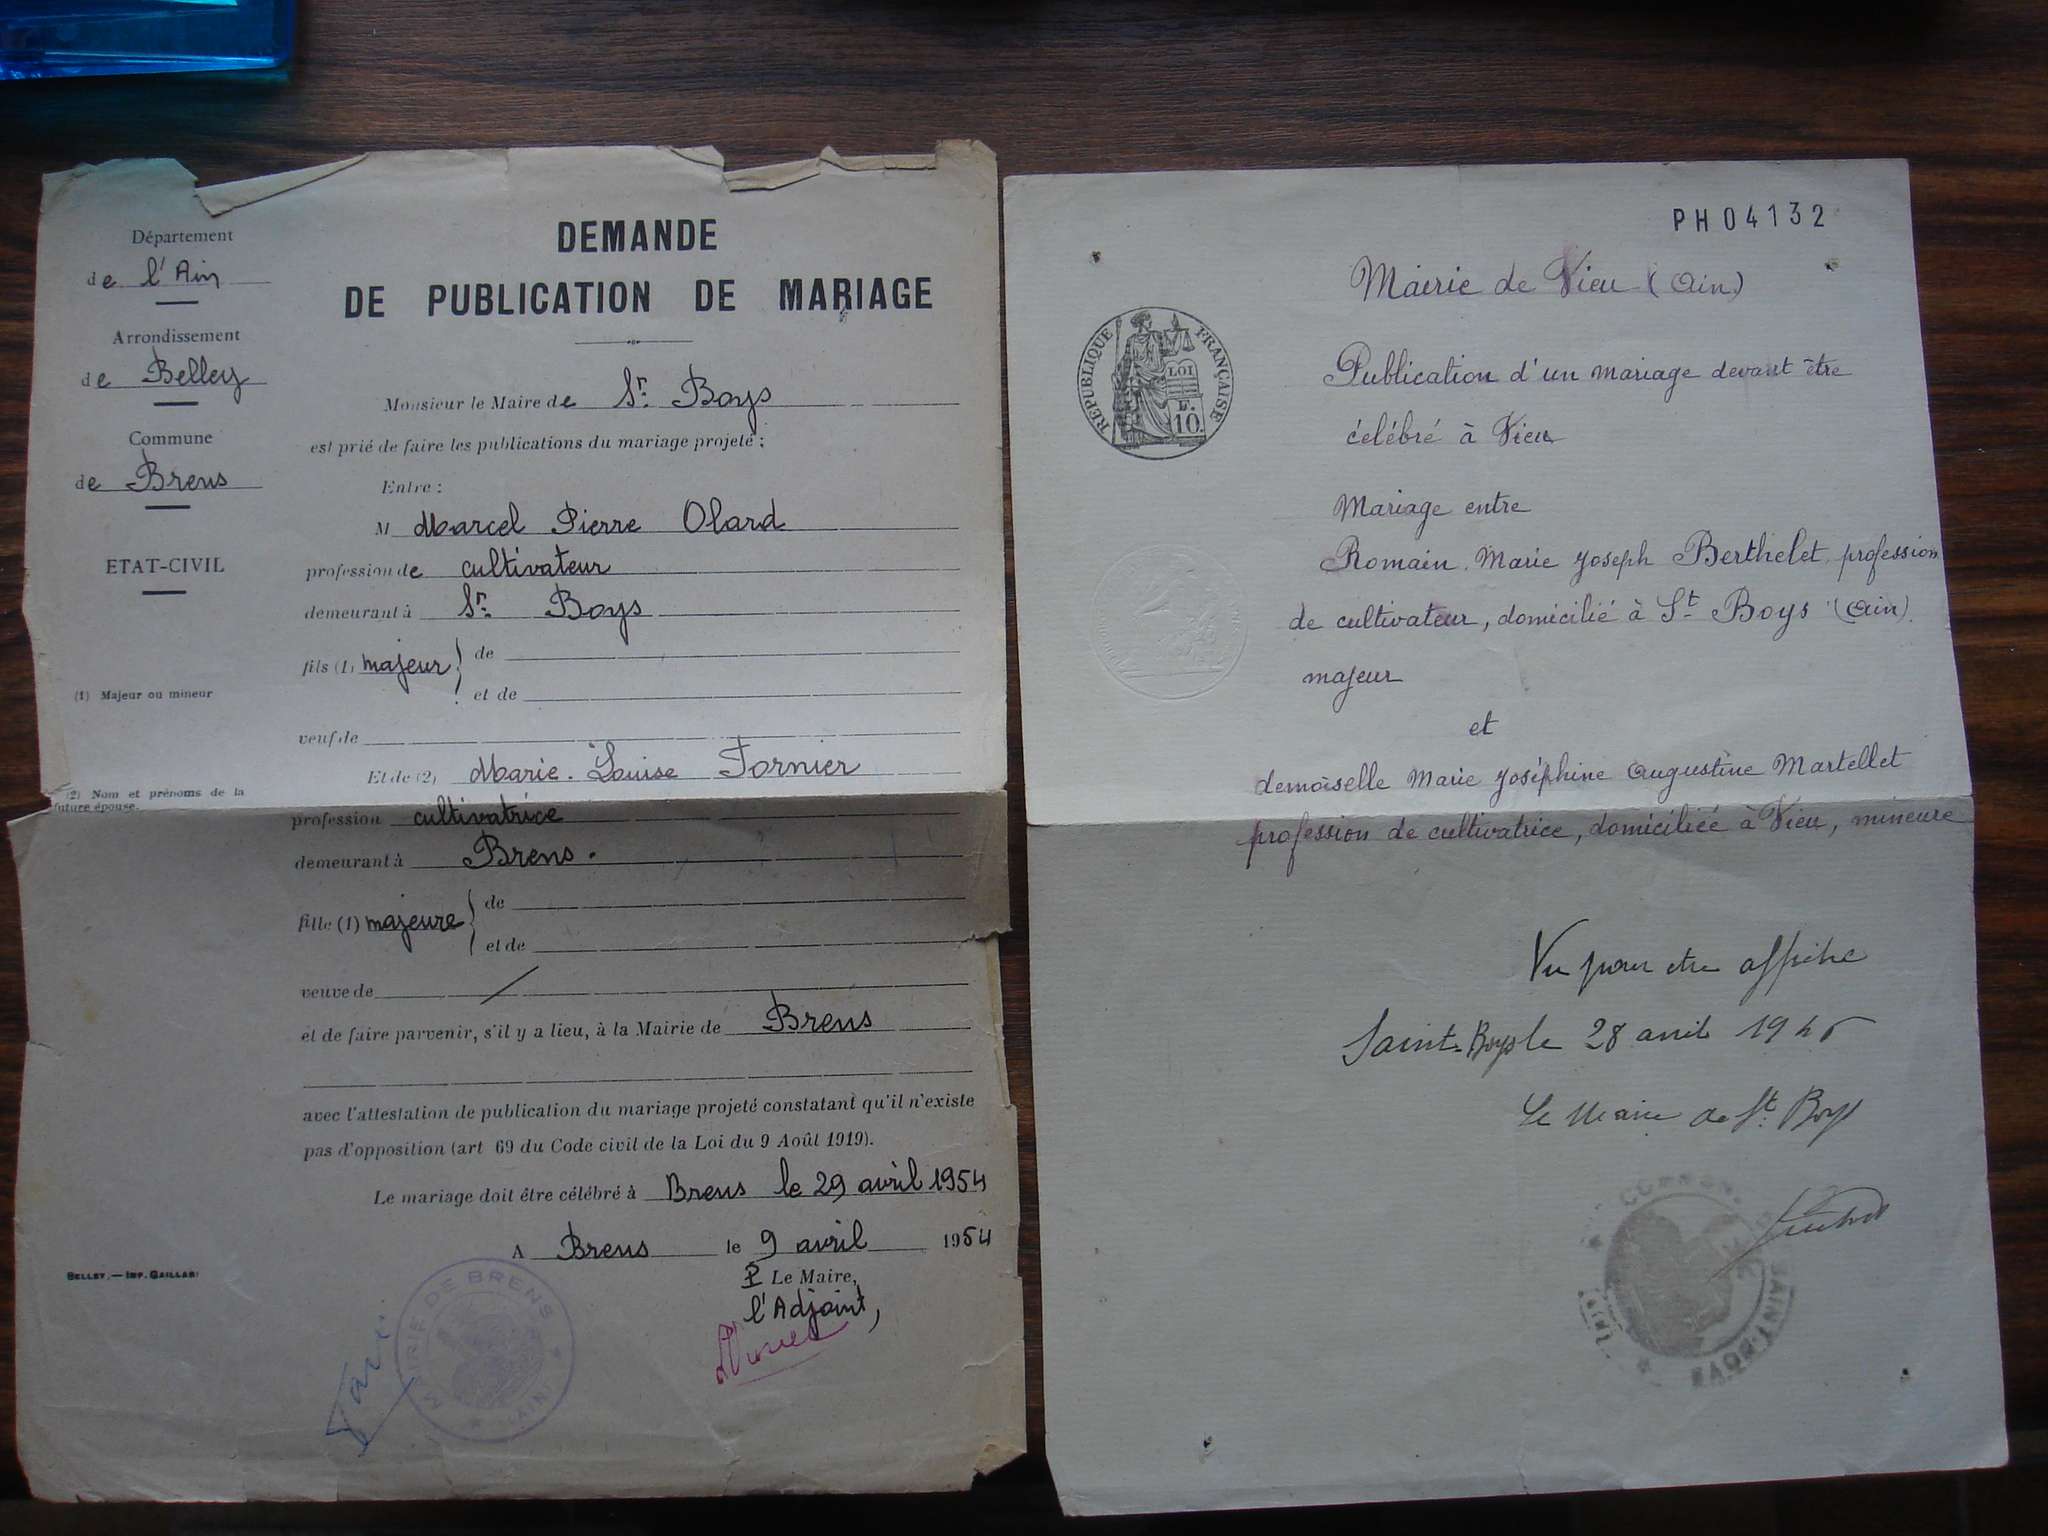 Département
de l'Ain
Arrondissement
de Belley
Commune
de Brens
ETAT-CIVIL
(1) Majeur ou mineur
(2) Nom et prénoms de la
future épouse.
BELLEY. — IMP. GAILLARD
DEMANDE
DE PUBLICATION DE MARIAGE
Monsieur le Maire de St. Boys
est prié de faire les publications du mariage projeté :
Entre :
M Marcel Pierre Olard
profession de cultivateur
demeurant à St. Boys
fils (1) majeur } de
et de
veuf de
Et de (2) Marie-Louise Fornier
profession cultivatrice
demeurant à Brens.
fille (1) majeure { de
et de
veuve de /
et de faire parvenir, s'il y a lieu, à la Mairie de Brens
avec l'attestation de publication du mariage projeté constatant qu'il n'existe
pas d'opposition (art 69 du Code civil de la Loi du 9 Août 1919).
Le mariage doit être célébré à Brens le 29 avril 1954
A Brens le 9 avril 1954
P Le Maire,
l'Adjoint,
MAIRIE DE BRENS
(AIN)
PH04132
REPUBLIQUE FRANÇAISE
LOI
F.
10.
Mairie de Vieu (Ain)
Publication d'un mariage devant être
célébré à Vieu
Mariage entre
Romain Marie Joseph Berthelet, profession
de cultivateur, domicilié à St Boys (Ain).
majeur
et
demoiselle Marie Joséphine Augustine Martellet
profession de cultivatrice, domiciliée à Vieu, mineure
Vu pour etre affiche
Saint-Boys le 28 avril
Le Maire de St. Boys
COMMUNE
SAINT-BOYS
(AIN)